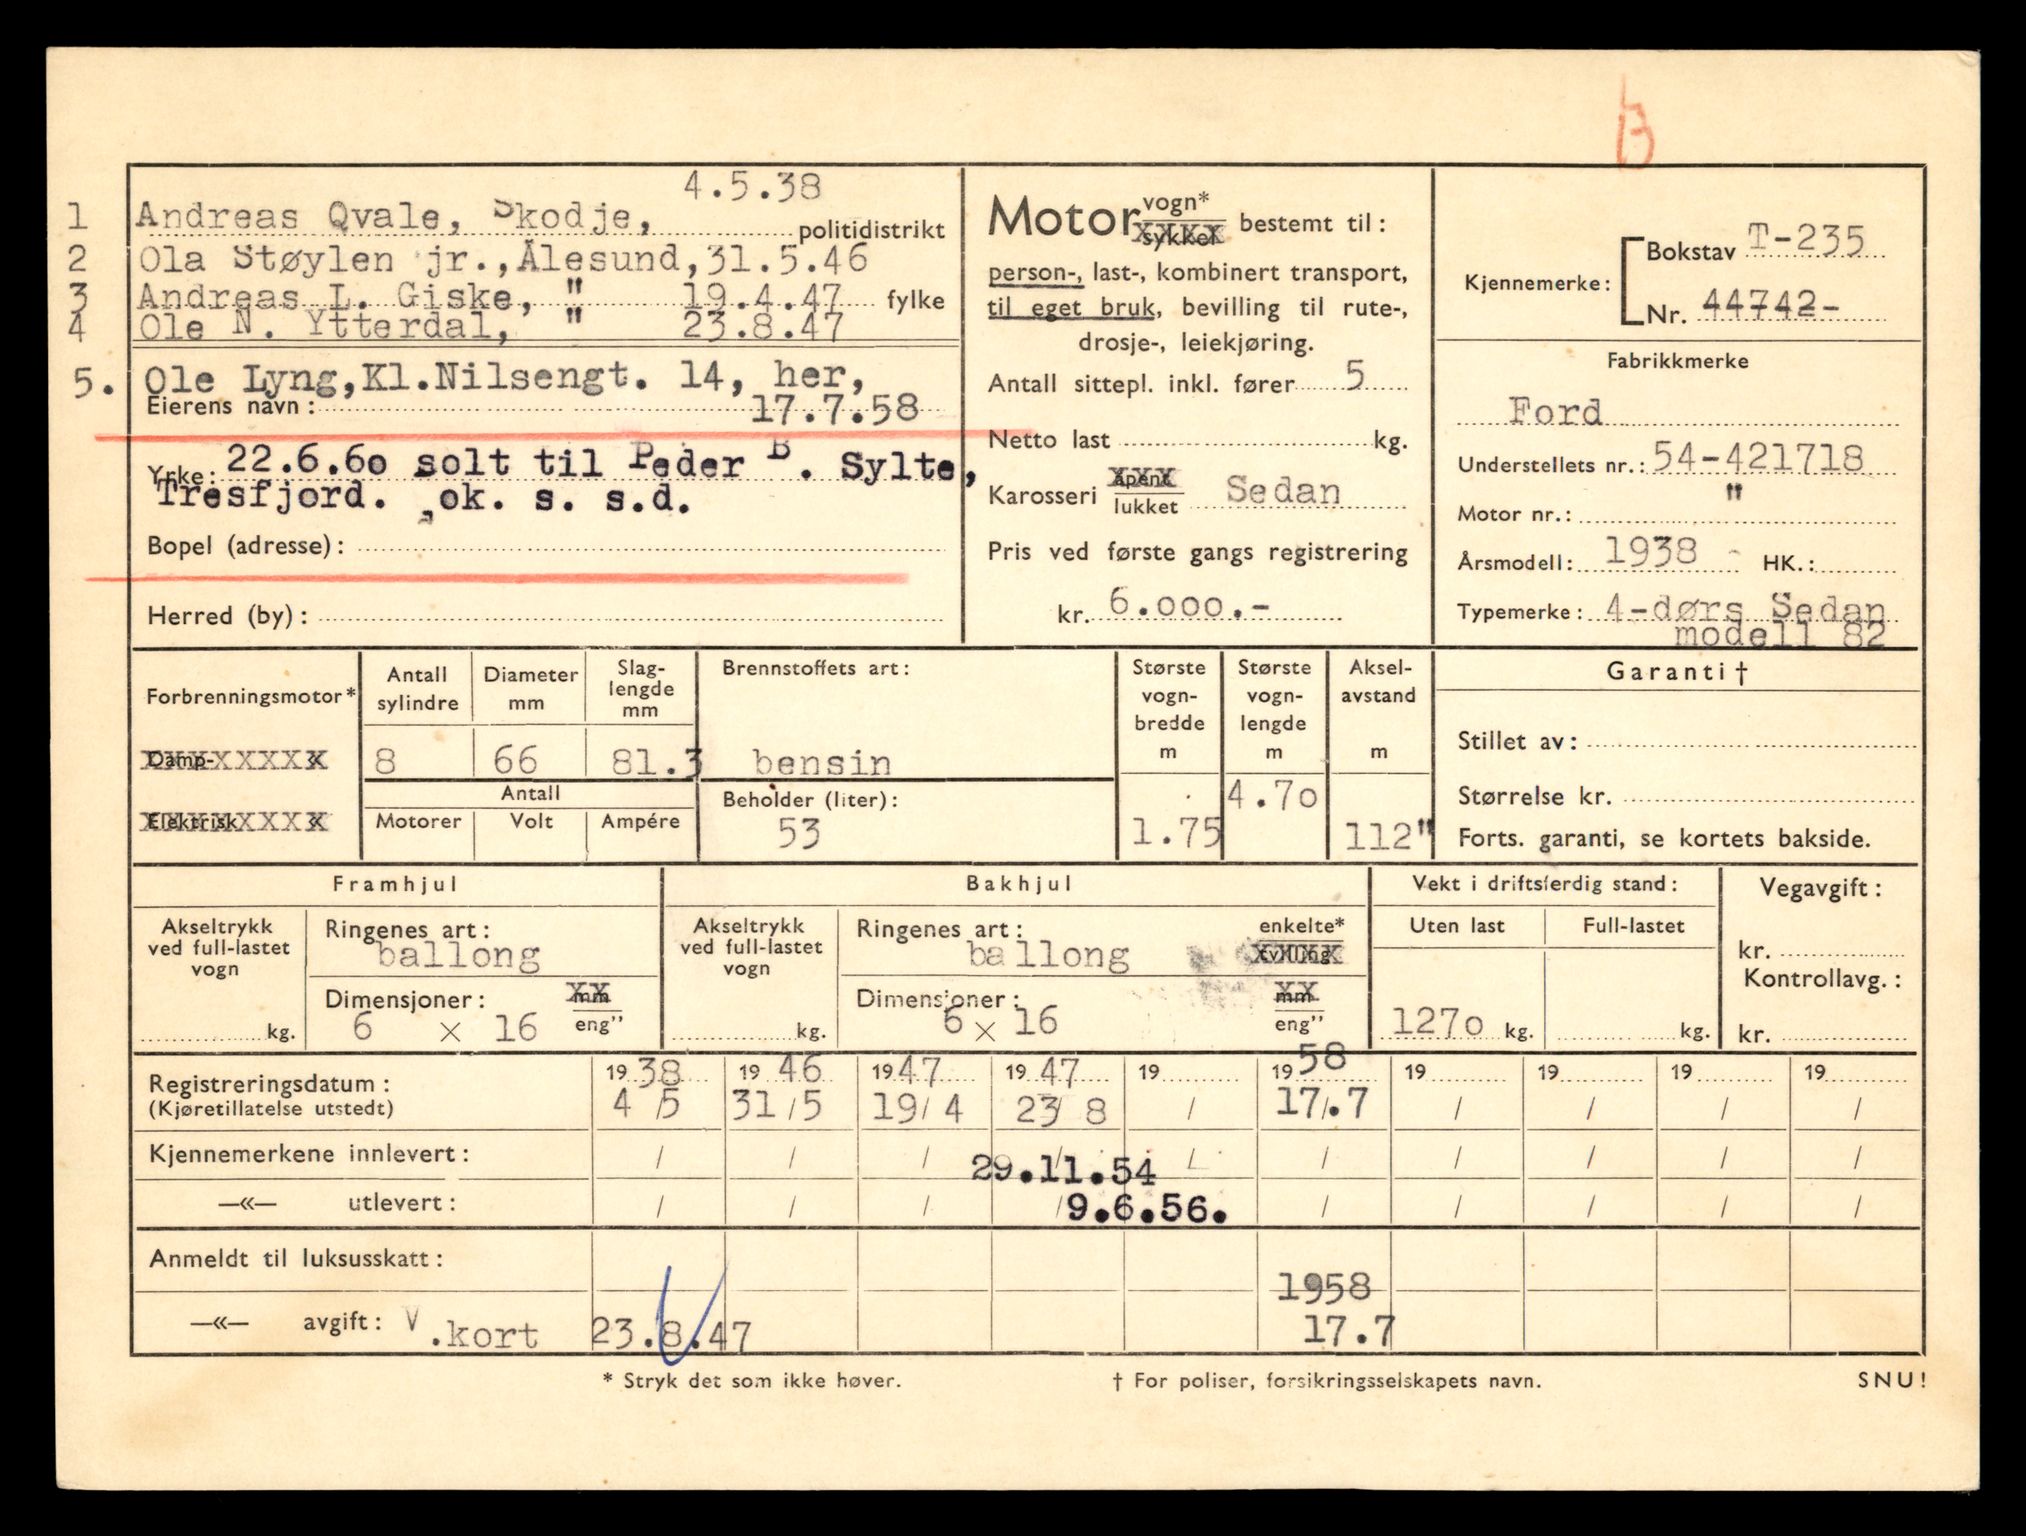 4.5.38
1 Andreas Qvale, Skodje, politidistrikt
2 Ola Støylen jr.,Ålesund,31.5.46
3 Andreas L. Giske, " 19.4.47 fylke
4 Ole N. Ytterdal, " 23.8.47
5. Ole Lyng,Kl.Nilsengt. 14, her,
Eierens navn: 17.7.58
Yrke: 22.6.60 solt til Peder B. Sylte,
Tresfjord. ok. s. s.d.
Bopel (adresse):
Herred (by):
Motor vogn* sykkel bestemt til:
person-, last-, kombinert transport,
til eget bruk, bevilling til rute-,
drosje-, leiekjøring.
Antall sittepl. inkl. fører 5
Netto last kg.
Karosseri åpent lukket Sedan
Pris ved første gangs registrering
kr. 6.000.-
Kjennemerke: Bokstav T-235
Nr. 44742-
Fabrikkmerke
Ford
Understellets nr.: 54-421718
Motor nr.: "
Årsmodell: 1938 HK.:
Typemerke: 4-dørs Sedan
modell 82
Forbrenningsmotor*
Damp- «
Elektrisk «
Antall sylindre
Diameter mm
Slag-lengde mm
8 66 81.3
Antall
Motorer Volt Ampére
Brennstoffets art:
bensin
Beholder (liter):
53
Største vogn-bredde m
1.75
Største vogn-lengde m
4.70
Aksel-avstand m
112"
Garanti †
Stillet av:
Størrelse kr.
Forts. garanti, se kortets bakside.
Framhjul
Akseltrykk ved full-lastet vogn
kg.
Ringenes art:
ballong
Dimensjoner: mm eng”
6 × 16
Bakhjul
Akseltrykk ved full-lastet vogn
kg.
Ringenes art: enkelte*
ballong tvilling
Dimensjoner: mm eng”
6 × 16
Vekt i driftsferdig stand:
Uten last Full-lastet
1270 kg. kg.
Vegavgift:
kr.
Kontrollavg.:
kr.
Registreringsdatum: 1938 1946 1947 1947 19 1958 19 19 19 19
(Kjøretillatelse utstedt) 4/5 31/5 19/4 23/8 / 17/.7 / / / /
Kjennemerkene innlevert: / / / 29.11.54 / / / / / /
—«— utlevert: / / / / 9.6.56. / / / / /
Anmeldt til luksusskatt: 1958
—«— avgift: V.kort 23.8.47 17.7
* Stryk det som ikke høver. † For poliser, forsikringsselskapets navn. SNU!